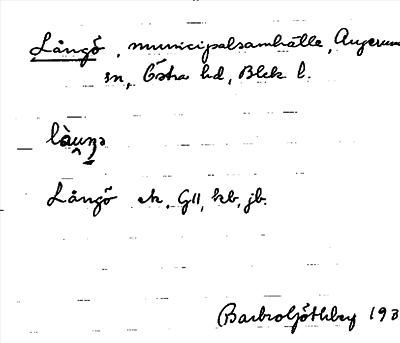 Långö, municipalsamhälle, Augerums
sn, Östra hd, Blek l.
Långö ek, GII, kb, jb.
Barbro Göthberg 193